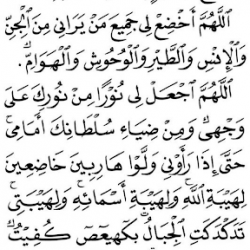 اَللّٰهُمَّ اَخْضِعْ لِى جَمِيعَ مَنْ يَرَانِى مِنَ الْجِنِّ
وَالْاِنْسِ وَالطَّيْرِ وَالْوُحُوشِ وَالْهَوَامِّ
اَللّٰهُمَّ اجْعَلْ لِى نُورًا مِنْ نُورِكَ عَلَى
وَجْهِى وَمِنْ ضِيَاءِ سُلْطَانِكَ اَمَامِى
حَتّٰى اِذَا رَاَوْنِى وَلَّوْا هَارِبِينَ خَاضِعِينَ
لِهَيْبَةِ اللهِ وَلِهَيْبَةِ اَسْمَائِهِ وَلِهَيْبَتِى
تَدَكْدَكَتِ الْجِبَالُ بِكٓهٰيٰعٓصٓ كُفِيتُ